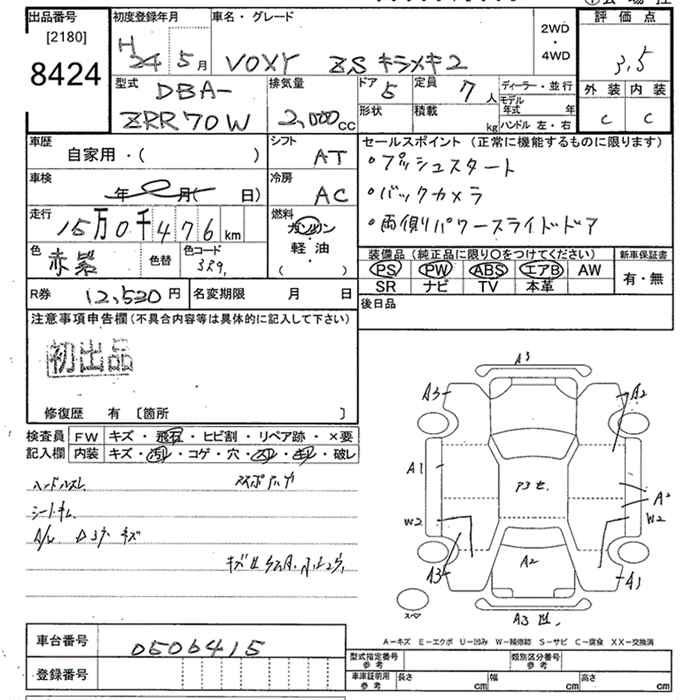 出品番号
[2180]
8424
初度登録年月
H 24 5月
車名・グレード
VOXY ZSキラメキ2
2WD
・
4WD
評価点
3.5
外装 内装
C C
型式
DBA-
ZRR70W
排気量
2,000cc
ドア 5
定員 7人
形状
積載 kg
ディーラー・並行
モデル年式 年
ハンドル 左・右
車歴
自家用・( )
シフト
AT
車検
年 月( 日)
冷房
AC
走行
15万0千476km
燃料
ガソリン
・
軽・油
( )
色
赤
色替
色コード
3R9
R券 12,520円
名変期限 月 日
セールスポイント(正常に機能するものに限ります)
・プッシュスタート
・バックカメラ
・両側パワースライドドア
装備品(純正品に限り〇をつけてください)
PS PW ABS エアB AW
SR ナビ TV 本革
新車保証書
有・無
後日品
注意事項申告欄(不具合内容等は具体的に記入して下さい)
初出品
修復歴 有 〔箇所 〕
検査員記入欄
FW キズ・飛石・ヒビ割・リペア跡・×要
内装 キズ・汚レ・コゲ・穴・スレ・キレ・破レ
ハンドルスレ
A3
A3
A2
A1
P3
A
W2
W2
A3
A2
A1
A3
スペア
A-キズ E-エクボ U-凹み W-補修跡 S-サビ C-腐食 XX-交換済
車台番号 0506415
登録番号
型式指定番号
参考
類別区分番号
参考
車庫証明用
参考
長さ cm
幅 cm
高さ cm